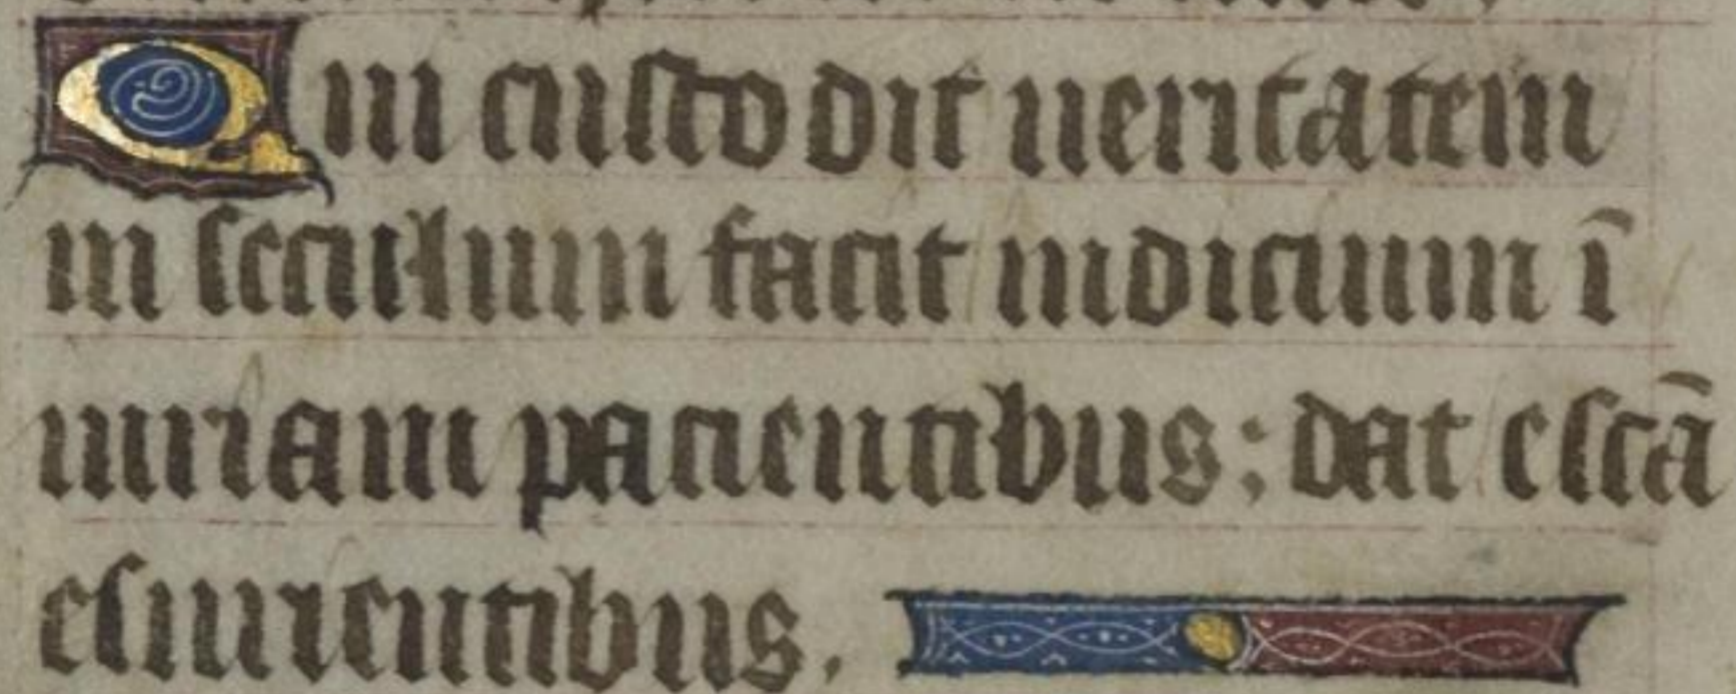 Qui custodit ueritatem
in seculum facit iudicium ī
iuriam pacientibus; dat escā
esurientibus.